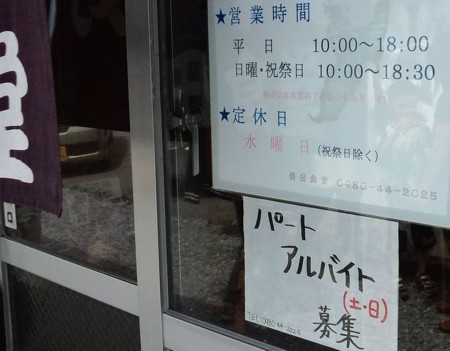 ★営業時間
平　日　10:00～18:00
日曜・祝祭日 10:00～18:30
★定休日
水曜日(祝祭日除く)
食堂 0980-44-2025
パート
アルバイト
(土・日)
募集
TEL:0980-44-2025